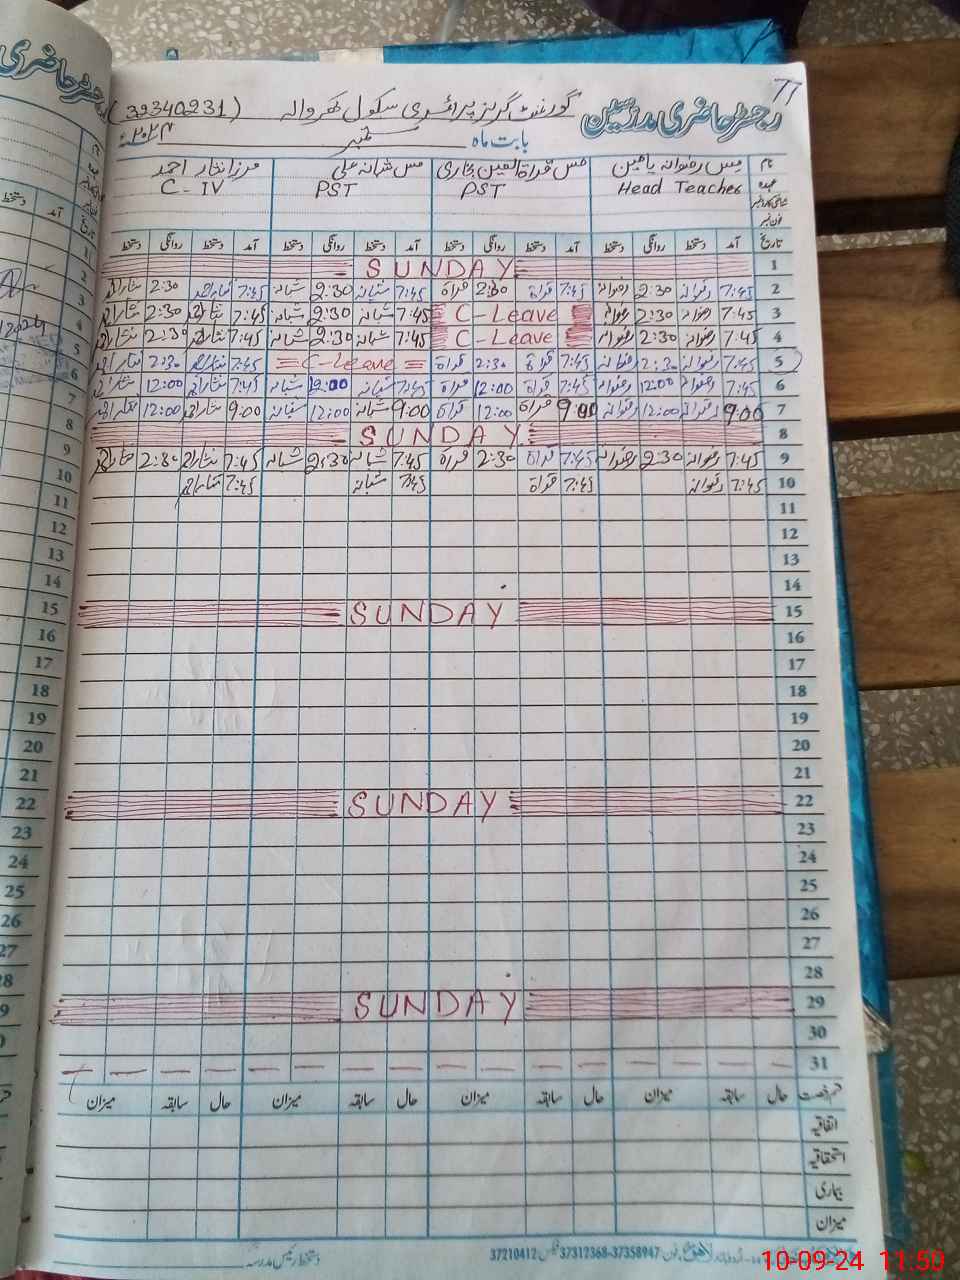 77
رجسٹر حاضری مدرسین
گورنمنٹ گرلز پرائمری سکول کھروالہ (39340231)
بابت ماہ ستمبر ۲۰۲۴ء
نام مس رضوانہ یاسمین مس قراۃ العین بخاری مس شبانہ علی مرزا نثار احمد
عہدہ Head Teacher PST PST C-IV
تاریخ آمد دستخط روانگی دستخط آمد دستخط روانگی دستخط آمد دستخط روانگی دستخط آمد دستخط روانگی دستخط
1 SUNDAY
2 7:45 رضوانہ 2:30 رضوانہ 7:45 قراۃ 2:30 قراۃ 7:45 شبانہ 2:30 شبانہ 7:45 نثار احمد 2:30 نثار احمد
3 7:45 رضوانہ 2:30 رضوانہ C-Leave 7:45 شبانہ 2:30 شبانہ 7:45 نثار احمد 2:30 نثار احمد
4 7:45 رضوانہ 2:30 رضوانہ C-Leave 7:45 شبانہ 2:30 شبانہ 7:45 نثار احمد 2:30 نثار احمد
5 7:45 رضوانہ 2:30 رضوانہ 7:45 قراۃ 2:30 قراۃ C-Leave 7:45 نثار احمد 2:30 نثار احمد
6 7:45 رضوانہ 12:00 رضوانہ 7:45 قراۃ 12:00 قراۃ 7:45 شبانہ 12:00 شبانہ 7:45 نثار احمد 12:00 نثار احمد
7 9:00 رضوانہ 12:00 رضوانہ 9:00 قراۃ 12:00 قراۃ 9:00 شبانہ 12:00 شبانہ 9:00 نثار احمد 12:00 نثار احمد
8 SUNDAY
9 7:45 رضوانہ 2:30 رضوانہ 7:45 قراۃ 2:30 قراۃ 7:45 شبانہ 2:30 شبانہ 7:45 نثار احمد 2:30 نثار احمد
10 7:45 رضوانہ 7:45 قراۃ 7:45 شبانہ 7:45 نثار احمد
11
12
13
14
15 SUNDAY
16
17
18
19
20
21
22 SUNDAY
23
24
25
26
27
28
29 SUNDAY
30
31
قسم رخصت حال سابقہ میزان حال سابقہ میزان حال سابقہ میزان حال سابقہ میزان
اتفاقیہ
استحقاقیہ
بیماری
میزان
لاہور فون: 37312368-37358947 فیکس 37210412
دستخط رئیس مدرسہ
10-09-24 11:50